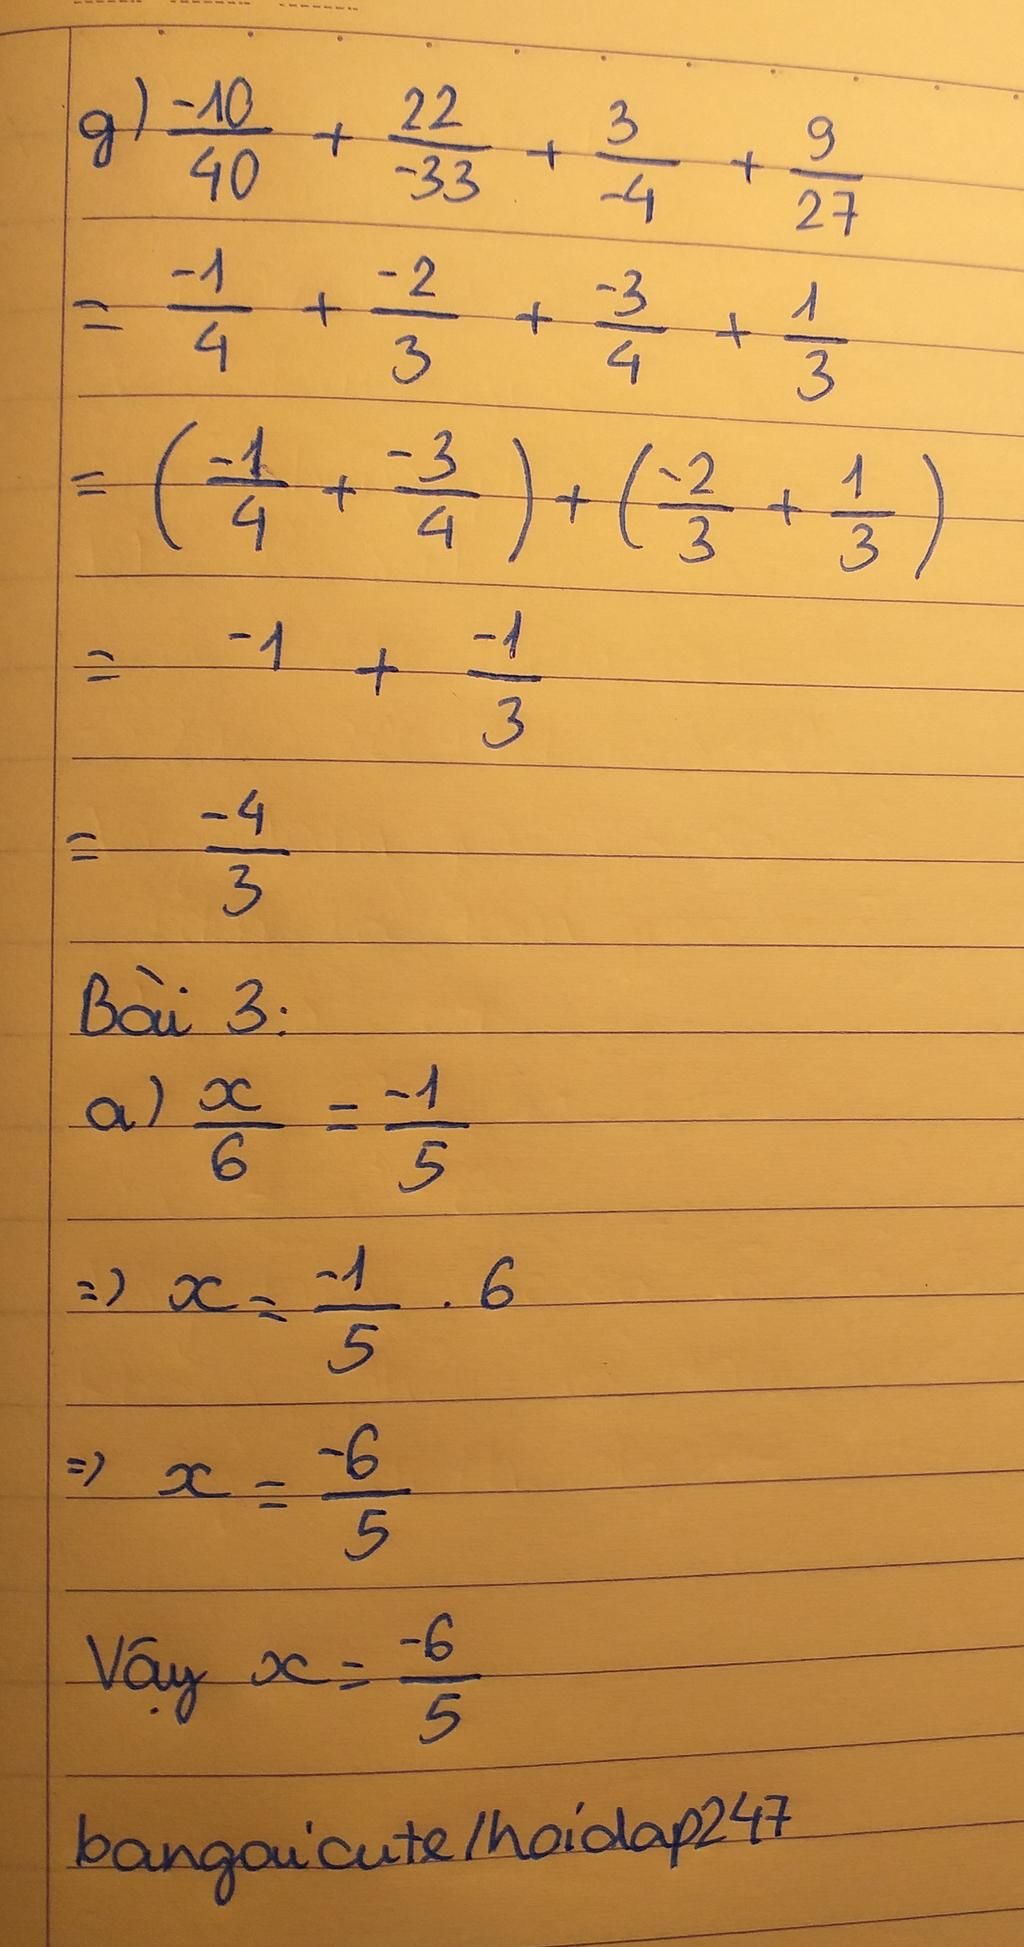 g) -10/40 + 22/-33 + 3/-4 + 9/27
= -1/4 + -2/3 + -3/4 + 1/3
= (-1/4 + -3/4) + (-2/3 + 1/3)
= -1 + -1/3
= -4/3
Bài 3:
a) x/6 = -1/5
=> x = -1/5 . 6
=> x = -6/5
Vậy x = -6/5
bangaicute/hoidap247